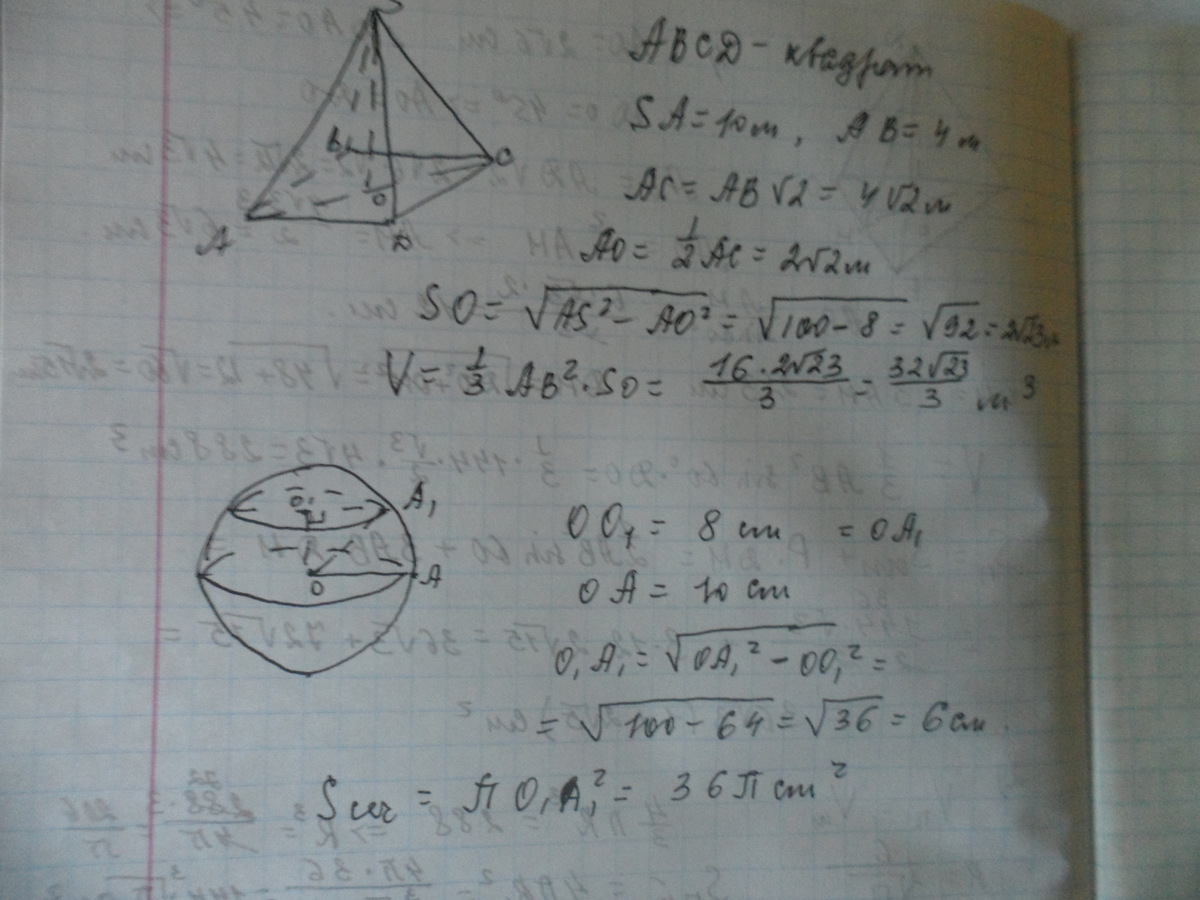 S
B
C
O
A
D
ABCD - квадрат
SA = 10 м, AB = 4 м
AC = AB√2 = 4√2 м
AO = 1/2 AC = 2√2 м
SO = √(AS² - AO²) = √(100 - 8) = √92 = 2√23 м
V = 1/3 AB² · SO = (16 · 2√23)/3 = (32√23)/3 м³
O₁
A₁
O
A
OO₁ = 8 cm = OA₁
OA = 10 cm
O₁A₁ = √(OA₁² - OO₁²) =
= √(100 - 64) = √36 = 6 см.
Sсеч = π O₁A₁² = 36π cm²